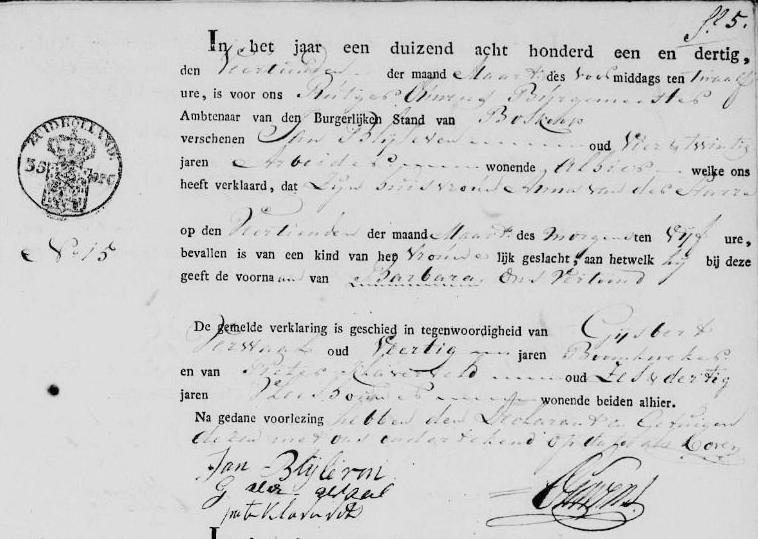 fl 5.
In het jaar een duizend acht honderd een en dertig,
den Veertienden der maand Maart des voor middags ten twaalf
ure, is voor ons Rutger Burgemeester
Ambtenaar van den Burgerlijken Stand van Boskoop
verschenen Jan Blijleven oud Vier & twintig
jaren Arbeider wonende Alhier welke ons
heeft verklaard, dat Zijn huisvrouw Anna van der Starre
op den Veertienden der maand Maart des morgens ten Vijf ure,
bevallen is van een kind van het Vrouwe lijk geslacht, aan hetwelk hij bij deze
geeft de voornaam van Barbara ons Vertoond
ZUID HOLLAND
No 15
De gemelde verklaring is geschied in tegenwoordigheid van Gijsbert
oud Veertig jaren Boomkweker
en van Pieter Klaverveld oud Zes & dertig
jaren wonende beiden alhier.
Na gedane voorlezing hebben den Declarant en Getuigen
dezen met ons ondertekend op dato als Boven
Jan Blijleven